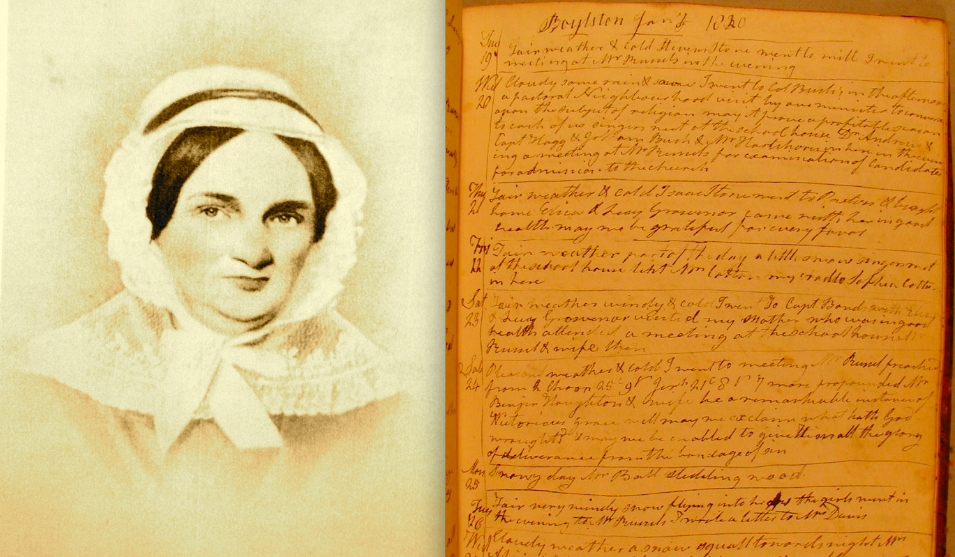 Boylston Jan'y 1820
Tue Fair weather & cold Stone went to mill I went to
19 meeting at Mr Russels in the evening
Wed Cloudy some rain & snow I went to Col Bush's in the afternoon
20 a pastoral Neighbourhood visit by our minister to converse
upon the subject of religion may it prove a profitable season
to each of us singers met at the school house Dr Andrews &
Capt Flagg & Jotham Bush & Mr Hartshorn in the even
ing a meeting at Mr Russels for examination of Candidates
for admission to the church
Thu Fair weather & cold Isaac Stone went to &
21 home & Lucy Grosvenor came with having good
health may we be grateful for every favor
Fri Fair weather part of the day a little snow singers met
22 at the school house lent Mrs Cotton my cradle Sophia Cotton
in here
Sat Fair weather windy & cold I went To Capt Bonds with
23 & Lucy Grosvenor visited my Mother who was in good
health attended a meeting at the school house Mr
Russel & wife there
Sab weather & cold I went to meeting Mr Russel preached
24 from 2 Chron 25 c 9 v 21 c 8 v 7 more propounded Mr
Houghton & wife be a remarkable instance of
Victorious Grace well may we exclaim what hath God
wrought may we be enabled to give them all the glory
of deliverance from the bondage of sin
Mon Snowy day Mr Ball sledding wood
25
Tue Fair very windy snow flying into the girls went in
26 the evening to Mr Russels I wrote a letter to Mr Davis
Wed Cloudy weather a snow squall towards night Mrs